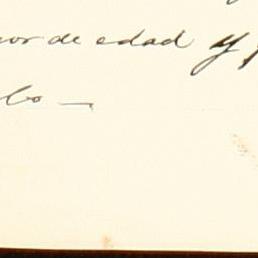 or de edad y
lo —